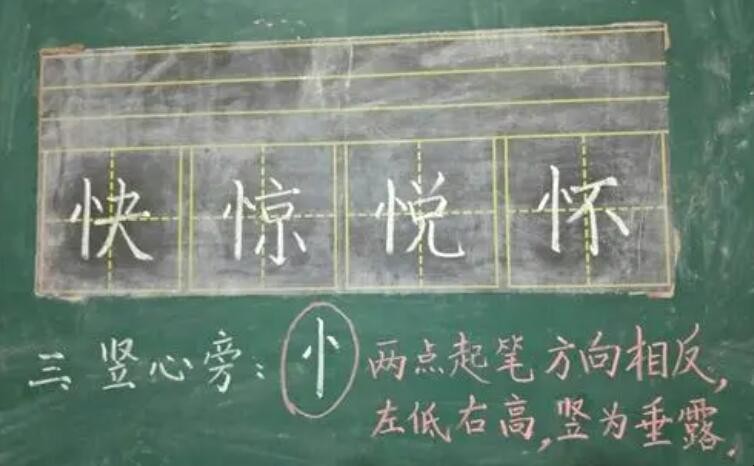 快 惊 悦 怀
三、竖心旁：忄 两点起笔方向相反，
左低右高，竖为垂露。